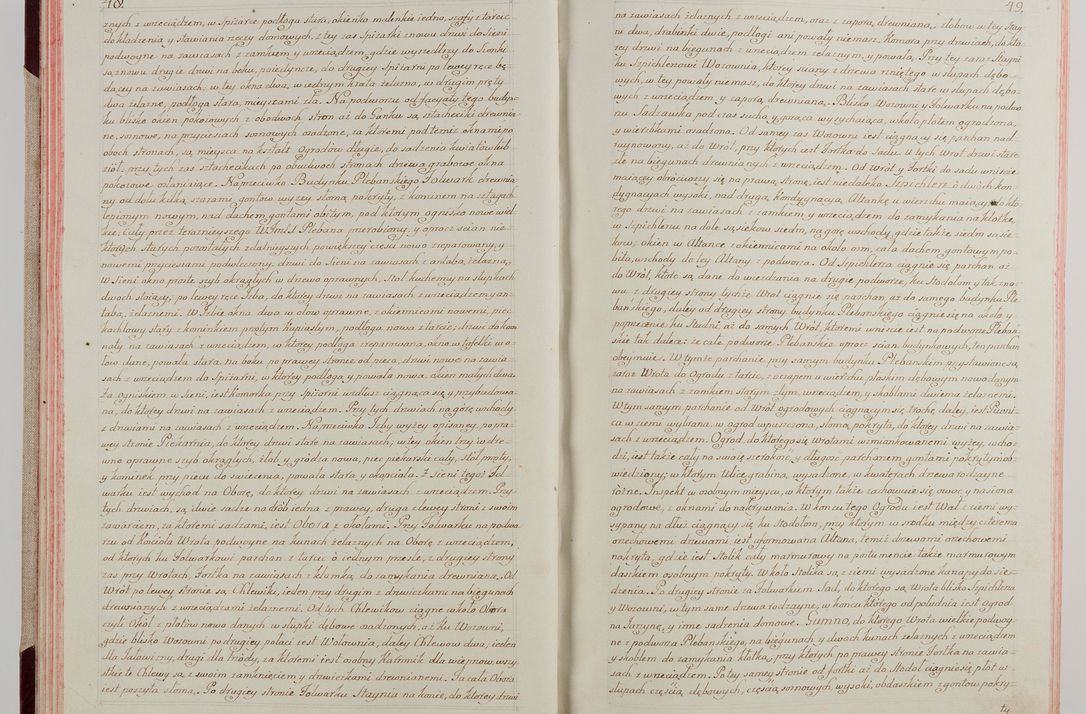 18.
znych z wrzeciądzem, w Spiżarce podłoga stara, okienko malenkie iedno, szafy z tarcic
do kładzenia y stawiania rzeczy domowych, z tey zas Spiżarki znowu drzwi do Sieni
podwoyne na zawiasach z zamkiem y wrzeciądzem, gdzie wyszedłszy do Sionki
są znowu drugie drzwi na boku, poiedyncze, do drugiey Spiżarni po lewey ręce bę-
dącey na zawiasach, w tey okna dwa, w iednym krata żelazna, w drugim pręty
dwa żelazne, podłoga stara, mieyscami zła. Na podworzu od facyaty tego budyn-
ku blisko okien pokoiowych z obodwoch stron aż do Ganku są sztachetki drewnia-
ne, sosnowe, na przyciesiach sosnowych osadzone, za któremi pod temiż oknami po
oboch stronach, są mieysca na kształt Ogrodów długie, do sadzenia kwiatów lub
ziół, przy tych zas sztachetkach po obudwoch stronach drzewa grabowe okna
pokoiowe osłaniaiące. Naprzeciwko Budynku Plebanskiego Folwark drewnia-
ny od dołu kilką szarami gontow wyżey słomą pokryty, z kominem na sztych
lepionym nowym, nad dachem gontami obitym, pod którym ognisko nowe wiel-
kie, Cały przez teraznieyszego WJmci X Plebana przerobiony, y oprocz scian nie-
których starych pozostałych z dalnieyszych powiększey części nowo zreparowany, y
nowemi przyciesiami podwleczony, drzwi do Sieni na zawiasach z antabą żelazną,
W Sieni okno proste szyb okrągłych w drzewo oprawnych, Stół kuchenny na słupkach
dwoch stoiący, po lewey ręce Izba, do którey drzwi na zawiasach z wrzeciądzem y an-
tabą, żelaznemi. W Izbie okna dwa w ołow oprawne, z okiennicami nowemi, piec
kachlowy stary z kominkiem prostym kapiastym, podłoga nowa z tarcic; drzwi do kom-
naty na zawiasach z wrzeciądzem, w ktorey podłoga zreparowana, okno w tafelki w o-
łow dane, powała stara, na boku po prawey stronie od pieca, drzwi nowe na zawia-
sach z wrzeciądzem do Spiżarni, w którey podłoga y powała nowa, okien małych dwa.
Za ogniskiem w Sieni, iest komorka przy Spiżarni wzdłusz ciągnąca się y przybudowa-
na, do którey drzwi na zawiasach z wrzeciądzem. Przy tych drzwiach na gorę wschody
z drzwiami na zawiasach z wrzeciądzem. Naprzeciwko Izby wyżey opisaney, po pra-
wey stronie Piekarnia, do ktorey drzwi stare na zawiasach; w tey okien trzy w drze-
wno oprawne szyb okrągłych, stół y grzęda nowa, piec piekarski cały, stół prosty,
y kominek przy piecu do swiecenia, powała stara, y okopciała. Z Sieni tegoż Fol-
warku iest wychod na Oborę, do ktorey drzwi na zawiasach z wrzeciądzem. Przy
tych drzwiach, są dwie sadze na drób iedna z prawey, druga z lewey stroni z swoim
zawarciem, za któremi sadzami, iest Obora z okołami. Przy Folwarku na podwo-
rzu od Kościoła Wrota podwoyne na kunach żelaznych na Oborę z wrzeciądzem,
od ktorych ku Folwarkowi parchan z tarcic o iednym przęśle, z drugiey strony
zas przy Wrotach, Fortka na zawiasach z klamką, do zamykania drewniana. Od
Wrót po lewey stronie są Chlewiki, ieden przy drugim z drzwiczkami na biegunach
drewnianych z wrzeciądzami żelaznemi. Od tych Chlewikow ciągnie wkoło Obora
czyli Okół z płotów nowo danych w słupki dębowe osadzonych, aż ku Wozowni,
gdzie blisko Wozowni po drugiey połaci iest Wołownia, daley Chlewow dwa, ieden
dla Jałowizny, drugi dla trzody, za któremi iest osobny Karmnik dla wieprzow, wszy-
stkie te Chlewy są z swoim zamknięciem y drzwiczkami drewnianemi. Ta cała Obora
iest poszyta słomą. Po drugiey stronie Folwarku Staynia na konie, do którey drzwi
19.
na zawiasach żelaznych z wrzeciądzem, oraz z zaporą, drewnianą, żłobow w tey Stay-
ni dwa, drabinki dwie, podłogi ani powały niemasz. Komora przy drzwiach, do któ-
rey drzwi na biegunach z wrzeciądzem żelaznym, y powałą. Przy tey zaraz Stayni
ku Szpichlerzowi Wozownia, którey sciany z drzewa rzniętego w słupach dębo-
wych, w tey powały niemasz, do którey drzwi na zawiasach stare w słupach dębo-
wych z wrzeciądzem y zaporą, drewnianą. Blisko Wozowni y Folwarku na podwo-
rzu Sadzawka pod czas sucha y gorąca wysychaiąca, wkoło płotem ogrodzona,
y wierzbkami osadzona. Od samey zas Wozowni iest ciągnący się parchan nad-
ruynowany, aż do Wrót, przy których iest Fortka do Sadu. U tych Wrot drzwi stare
złe na biegunach drewnianych z wrzeciądzem. Od Wrot y Fortki do sadu wniscie
maiącey obróciwszy się na prawą stronę, iest niedaleko Szpichlerz o dwóch kon-
dygnacyach wysoki, nad drugą Kondygnacyą, Altankę w wierzchu maiący, do któ-
rego drzwi na zawiasach z zamkiem, y wrzeciądzem do zamykania na kłotkę,
w Szpichlerzu na dole są, siekow siedm, na gorę wschody, gdzie także siedm są sie-
kow; okien w Altance z okiennicami na około osm, cała dachem gontowym po-
bita, wschody do tey Altany z podworza. Od Szpichlerza ciągnie się parchan aż
do Wrót, które są dane do wieżdżania na drugie podworze, ku Stodołom y tak zno-
wu z drugiey strony tychże Wrot ciągnie się parchan aż do samego budynku Ple-
bańskiego, daley od drugiey strony budynku Plebańskiego ciągnie się na około y
poprzecznie ku Studni, aż do samych Wrót, któremi wniscie iest na podworze Plebań-
skie tak dalece, że całe podworze Plebańskie oprocz scian budynkowych, ten parchan
obeymuie. W tymże parchanie przy samym budynku Plebańskim wystawionę są,
zaraz Wrota do Ogrodu z tarcic, z oczapem w wierzchu płaskim dębowym, nowo danym
na zawiasach z zamkiem starym złym, wrzeciądzem, y skoblami dwiema żelaznemi.
W tym samym parchanie od Wrót ogrodowych ciągnącym się, trochę daley, iest Piwni-
ca w ziemi wybrana, w ogrod wpuszczona, słomą, pokryta, do którey drzwi na zawia-
sach z wrzeciądzem. Ogrod, do którego się Wrotami wzmiankowanemi wyżey, wcho-
dzi, iest także cały na swoię szerokość y długość parchanem gontami pokrytym ob-
wiedziony; w którym Ulice grabina, wysadzone, w kwaterach drzewa rodzayne
różne. Inspekt w osobnym mieyscu, w którym także zachowuie się owoc y nasiona
ogrodowe, z oknami do nakrywania. W koncu tego Ogrodu iest Wał z ziemi wy-
sypany na dłuż ciągnący się ku Stodołom, przy którym w srodku między czterema
orzechowemi drzewami, iest uformowana Altana, temiż drzewami orzechowemi
nakryta, gdzie iest Stolik cały marmurowy na postumencie także marmurowym
daszkiem osobnym pokryty. W koło Stolika są, z ziemi wysadzone kanapy do sie-
dzenia. Po drugiey stronie za Folwarkiem Sad, do którego są, Wrota blisko Szpichlerza
y Wozowni, w tym same drzewa rodzayne, w koncu którego od południa iest ogrod
na Jarzynę, y inne sadzenia domowe. Gumno, do którego Wrota wielkie podwoy-
ne z podworza Plebańskiego, na biegunach y dwoch kunach żelaznych z wrzeciądzem
y skoblem do zamykania kłotką, przy których po prawey stronie Fortka na zawia-
sach z wrzeciądzem. Po tey samey stronie od fortki aż do Stodoł ciągnie się płot w-
słupach częścią dębowych, częścią sosnowych, wysoki, obdaszkiem z gontow pokry-
ty